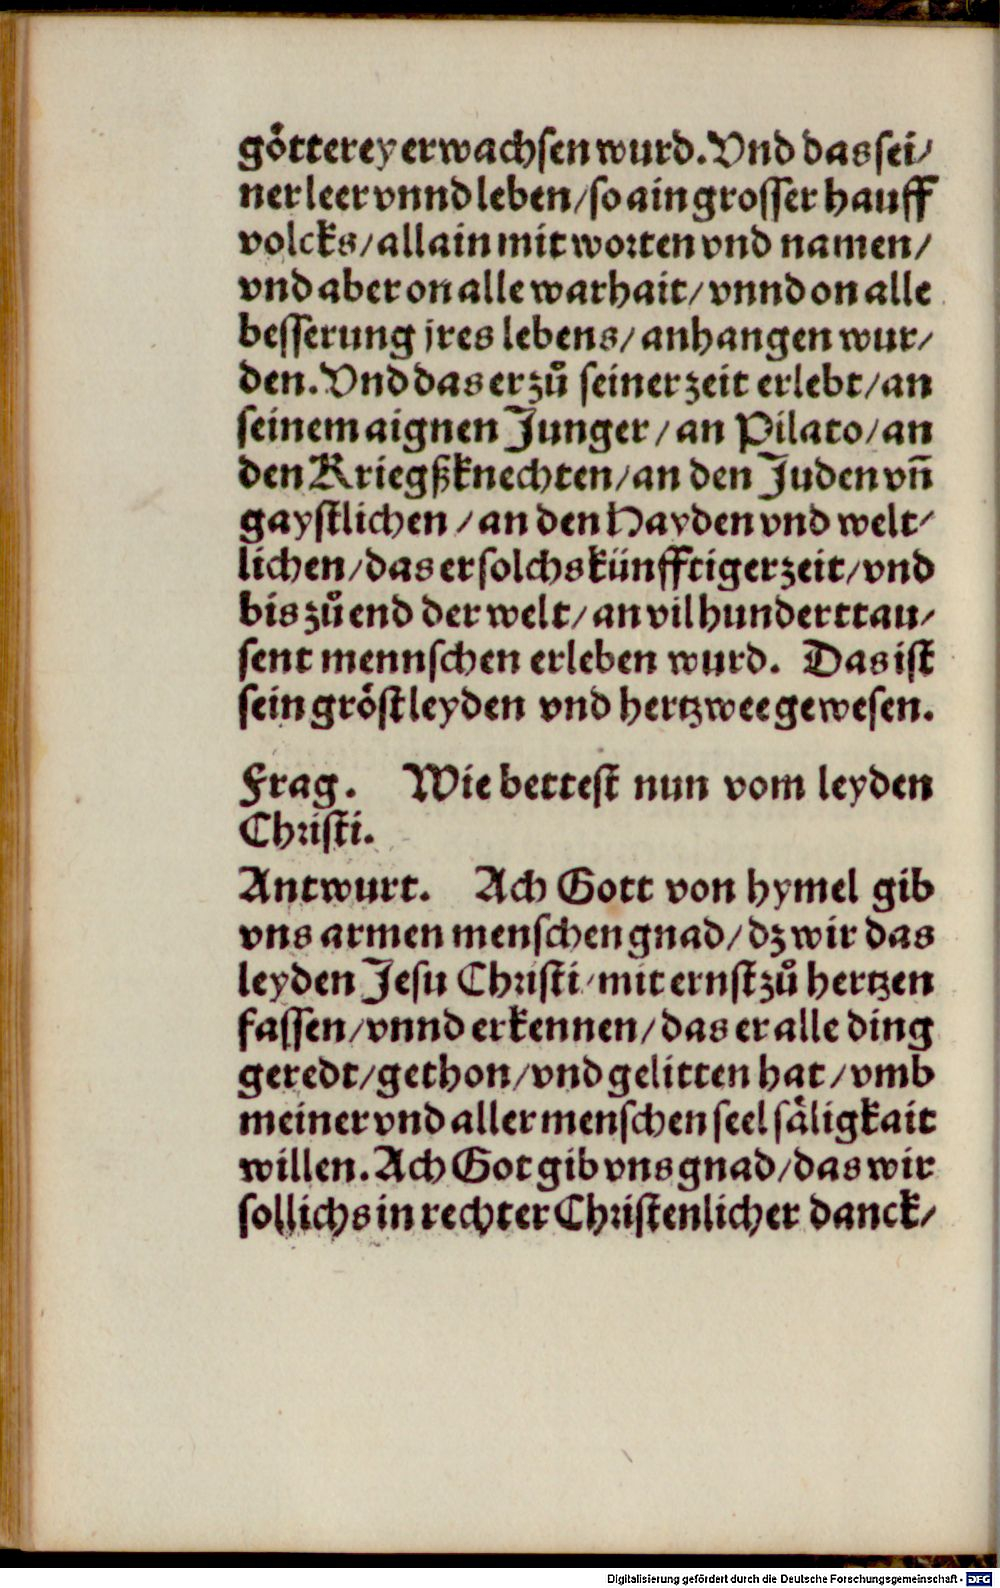 götterey erwachsen wurd. Vnd das sei/
ner leer vnnd leben/ so ain grosser hauff
volcks/ allain mit worten vnd namen/
vnd aber on alle warhait/ vnnd on alle
besserung jres lebens/ anhangen wur/
den. Vnd das er zů seiner zeit erlebt/ an
seinem aignen Junger/ an Pilato/ an
den Kriegßknechten/ an den Juden vn̄
gaystlichen/ an den Hayden vnd welt/
lichen/ das er solchs künfftiger zeit/ vnd
bis zů end der welt/ an vil hunderttau/
sent mennschen erleben wurd. Das ist
sein gröst leyden vnd hertzwee gewesen.
Frag. Wie bettest nun vom leyden
Christi.
Antwurt. Ach Gott von hymel gib
vns armen menschen gnad/ dz wir das
leyden Jesu Christi/ mit ernst zů hertzen
fassen/ vnnd erkennen/ das er alle ding
geredt/ gethon/ vnd gelitten hat/ vmb
meiner vnd aller menschen seel säligkait
willen. Ach Got gib vns gnad/ das wir
sollichs in rechter Christenlicher danck/
Digitalisierung gefördert durch die Deutsche Forschungsgemeinschaft - DFG